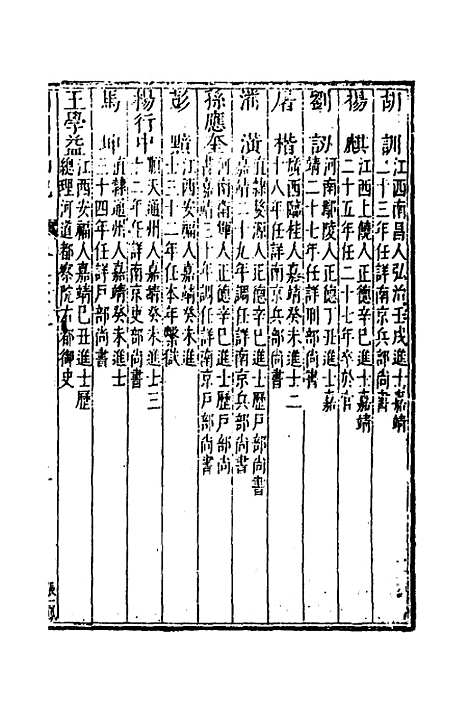 胡訓江西南昌人弘治壬戌進士嘉靖
二十三年任詳南京兵部尚書
楊麒江西上饒人正德辛巳進士嘉靖
二十五年任二十七年卒於官
劉訒河南鄢陵人正德丁丑進士嘉
靖二十七年任詳刑部尚書
屠楷廣西臨桂人嘉靖癸未進士二
十八年任詳南京兵部尚書
潘潢直隸婺源人正德辛巳進士歷戶部尚書
嘉靖二十九年調任詳南京兵部尚書
孫應奎河南衛輝人正德辛巳進士歷戶部尚
書嘉靖三十年調任詳南京戶部尚書
彭黯江西安福人嘉靖癸未進
士三十二年任本年繫獄
楊行中順天通州人嘉靖癸未進士三
十二年任詳南京吏部尚書
馬坤直隸通州人嘉靖癸未進士
三十四年任詳戶部尚書
王學益江西安福人嘉靖己丑進士歷
總理河道都察院右都御史